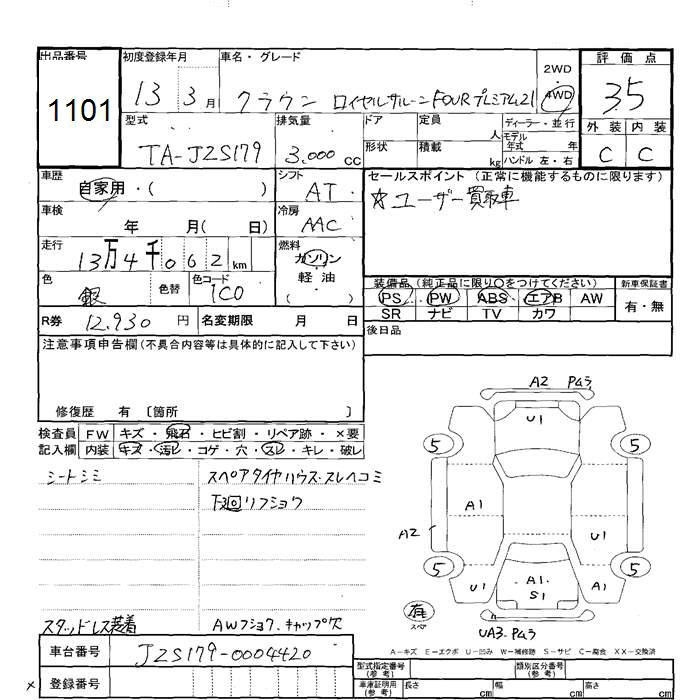 出品番号 初度登録年月 車名・グレード 2WD 評価点
1101 13 3月 クラウン ロイヤルサルーンFOURプレミアム21 4WD 35
型式 排気量 ドア 定員 人 ディーラー・並行 外装 内装
TA-JZS179 3,000 CC 形状 積載 kg モデル年式 年 C C
ハンドル 左・右
車歴 自家用・( ) シフト AT セールスポイント (正常に機能するものに限ります)
☆ユーザー買取車
車検 年 月( 日) 冷房 AAC
走行 13万4千062 km 燃料 ガソリン
軽油
( )
色 銀 色替 色コード 1C0 装備品(純正品に限り○をつけてください) 新車保証書
PS PW ABS エアB AW 有・無
SR ナビ TV カワ
R券 12,930 円 名変期限 月 日 後日品
注意事項申告欄(不具合内容等は具体的に記入して下さい)
修復歴 有 〔箇所 〕
検査員 FW キズ・飛石・ヒビ割・リペア跡・×要
記入欄 内装 キズ・汚レ・コゲ・穴・スレ・キレ・破レ
シートシミ スペアタイヤハウス・スレヘコミ
下回リフショウ
スタッドレス装着 AWフショク、キャップ欠
A2 Pムラ
U1
5 5
A1
A2 U1
5 5
U1 A1 S1 A1
有
スペア
UA3・Pムラ
A-キズ E-エクボ U-凹み W-補修跡 S-サビ C-腐食 XX-交換済
車台番号 JZS179-0004420
登録番号
型式指定番号(参考) 類別区分番号(参考)
車庫証明用(参考) 長さ cm 幅 cm 高さ cm
×